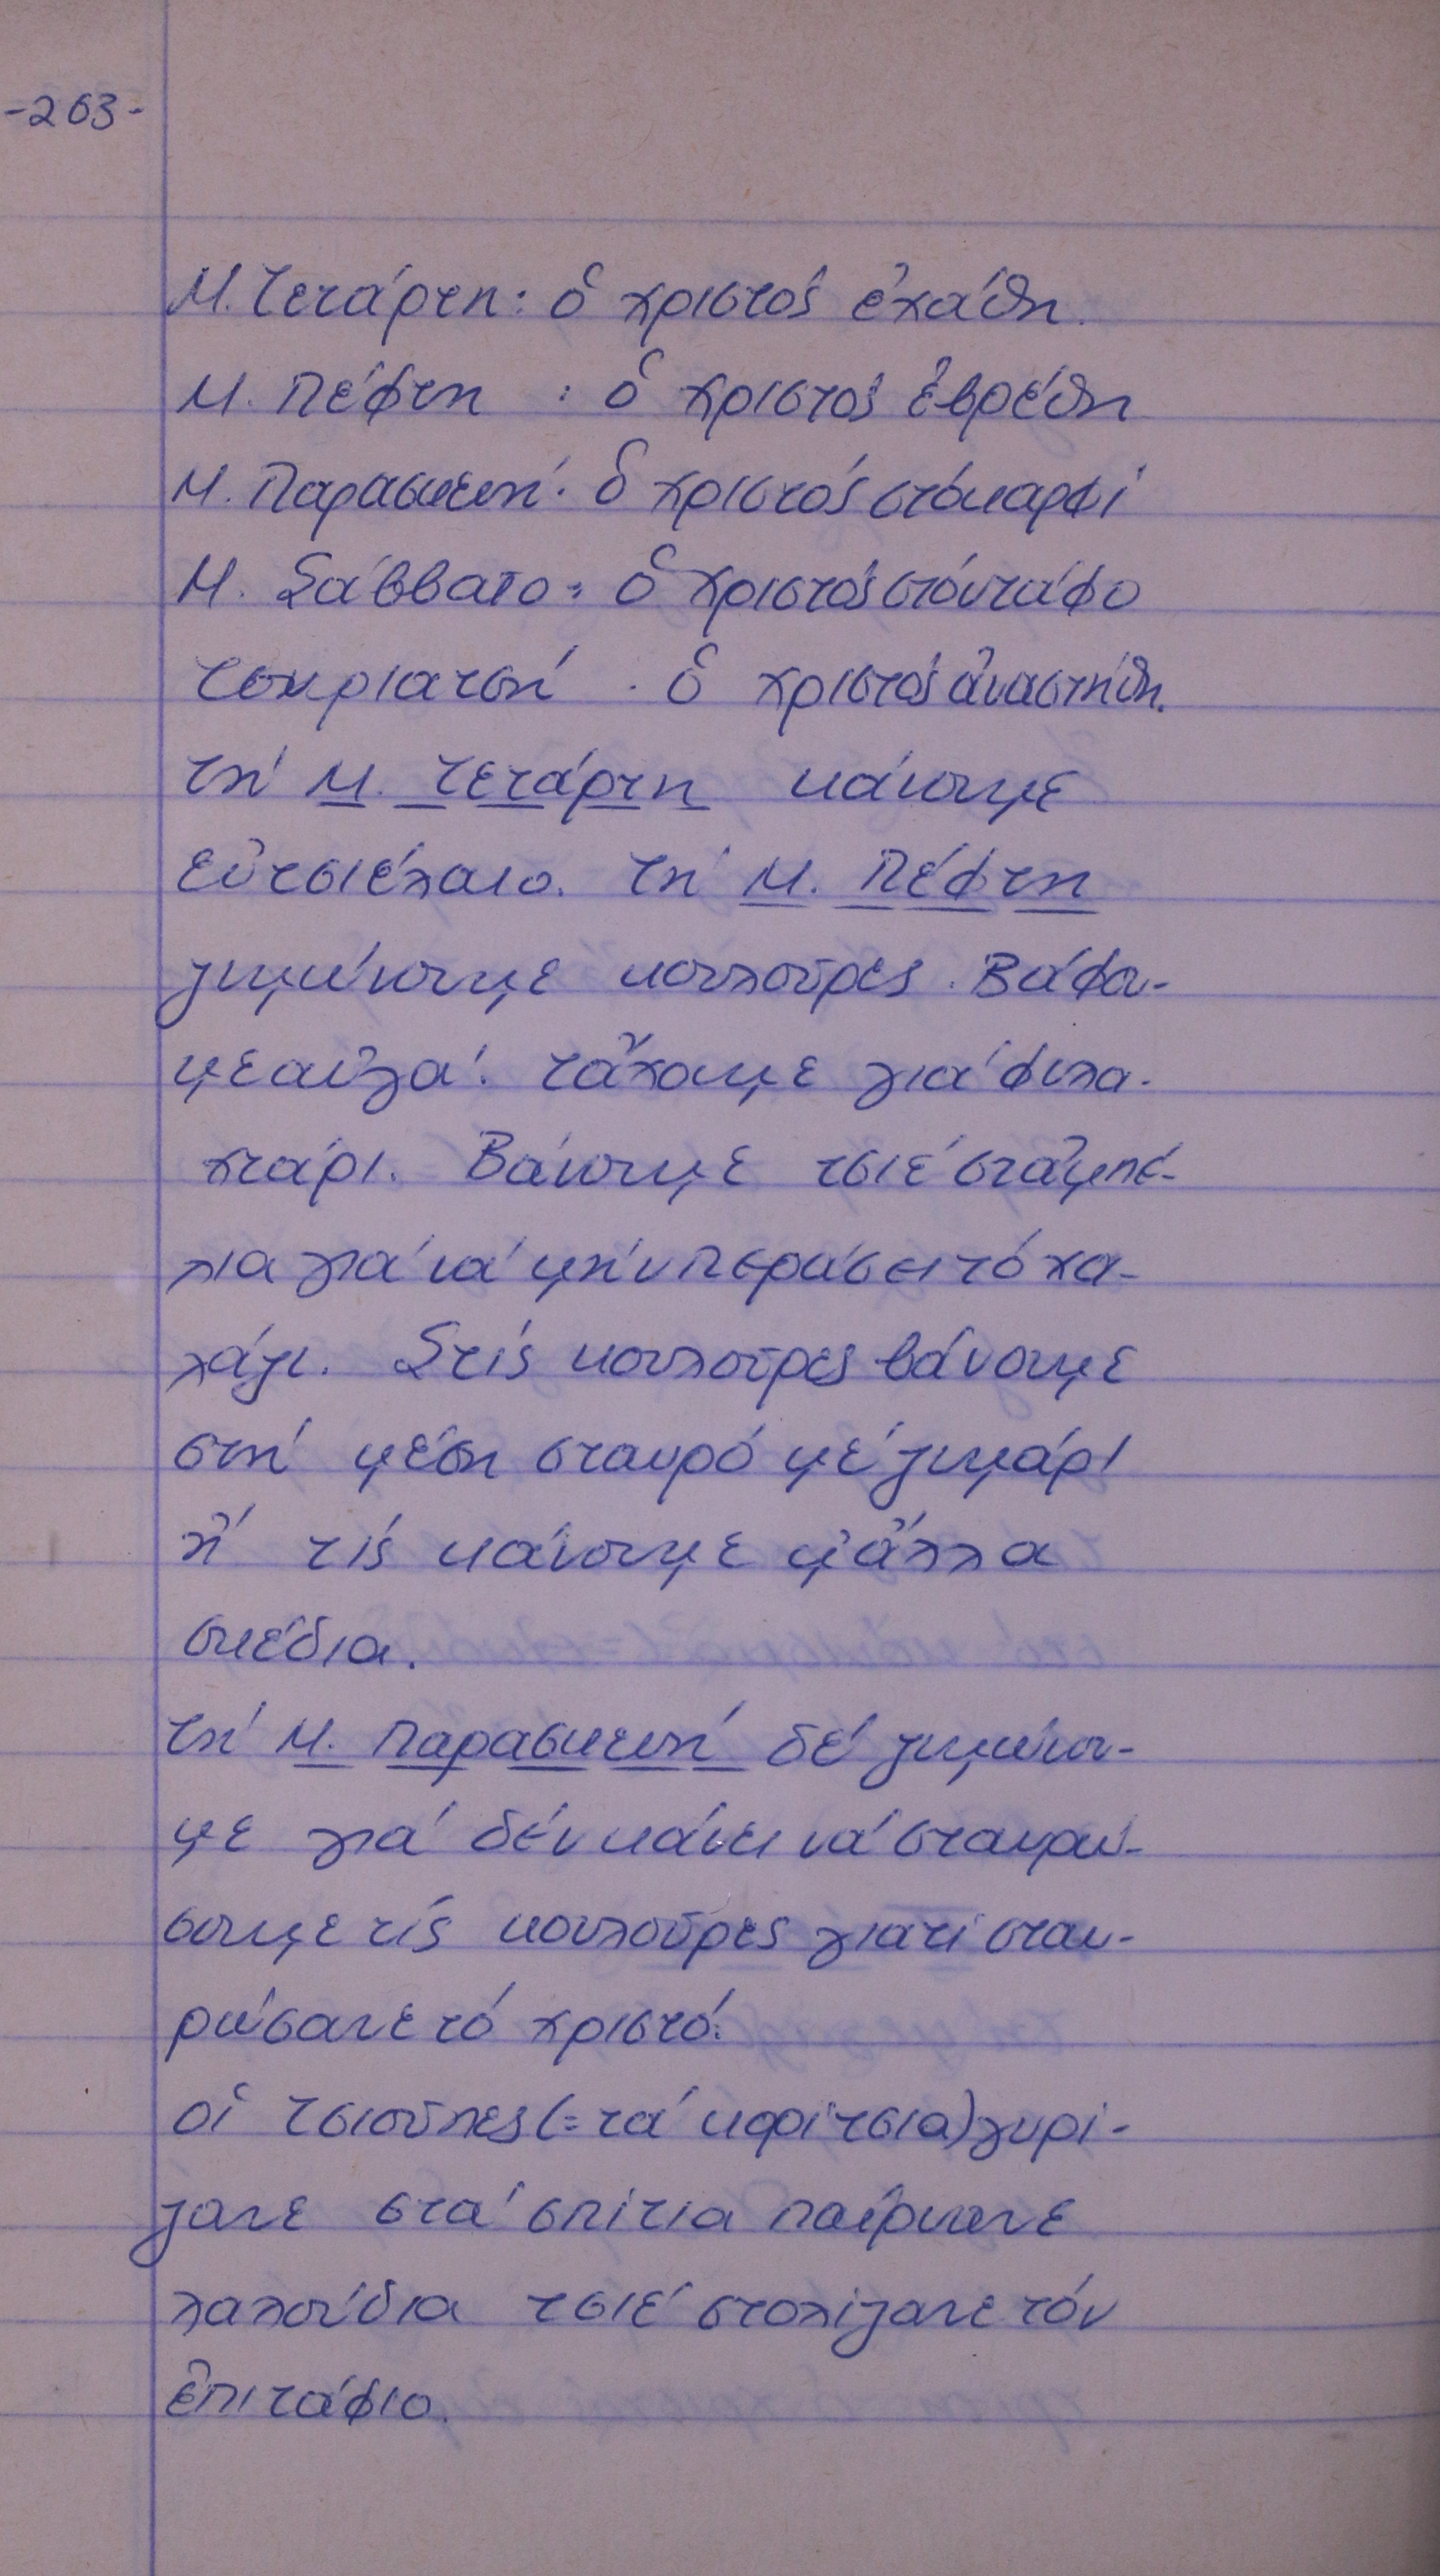 -263-
Μ. Τετάρτη: ὁ χριστός ἐχάθη.
Μ. Πέφτη : ὁ χριστός ἐβρέθη
Μ. Παρασκευή: ὁ χριστός στόκαρφί
Μ. Σάββατο: ὁ χριστός στόντάφο
Τσυριατσή . ὁ χριστός ἀναστήθη.
τή Μ. Τετάρτη κάνουμε
εὐτσιέλαιο. τή Μ. Πέφτη
ζυμώνουμε κουλοῦρες. Βάφου-
με αὐγά. τἄχουμε γιά φυλα-
χτάρι. Βάνουμε τσιέ στἀμπέ-
λια γιά νά μήν περάσει τό χα-
λάζι. Στίς κουλοῦρες βάνουμε
στή μέση σταυρό μέ ζυμάρι
ἤ τίς κάνουμε μ' ἄλλα
σκέδια.
τή Μ. Παρασκευή δέ ζυμώνου-
με γιά δέν κάνει νά σταυρώ-
σουμε τίς κουλοῦρες γιατί σταυ-
ρώσανε τό χριστό.
οἱ τσιοῦπες (= τά κορίτσια) γυρί-
ζανε στά σπίτια παίρνανε
λαλούδια τσιέ στολίζανε τόν
ἐπιτάφιο.